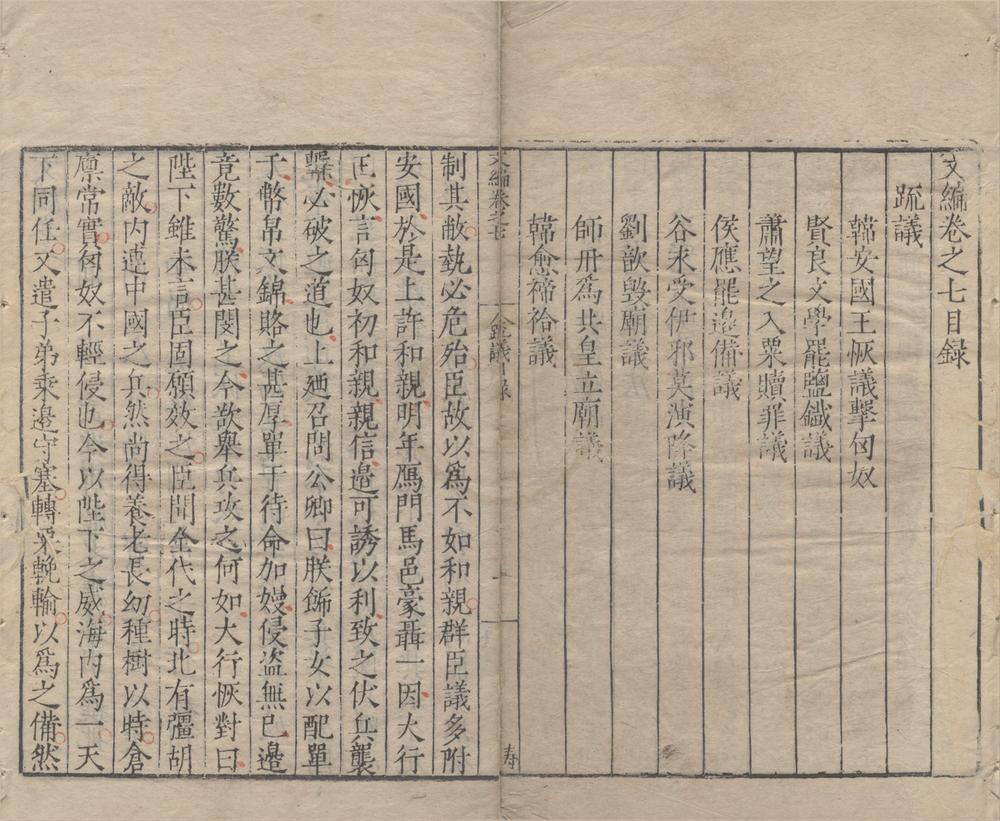 文編卷之七目録
疏議
韓安國王恢議擊匈奴
賢良文學罷鹽鐵議
蕭望之入粟贖罪議
侯應罷邊備議
谷永受伊邪莫演降議
劉歆毁廟議
師丹爲共皇立廟議
韓愈禘祫議
文編卷之七
疏議目録
一
寿
制其敝執必危殆臣故以爲不如和親群臣議多附
安國於是上許和親明年鴈門馬邑豪聶一因大行
王恢言匈奴初和親親信邊可誘以利致之伏兵襲
擊必破之道也上廼召問公卿曰朕飾子女以配單
于幣帛文錦賂之甚厚單于待命加嫚侵盗無已邊
竟數驚朕甚閔之今欲舉兵攻之何如大行恢對曰
陛下雖未言臣固願效之臣聞全代之時北有彊胡
之敵内連中國之兵然尚得養老長幼種樹以時倉
廪常實匈奴不輕侵也今以陛下之威海内爲一天
下同任又遣子弟乗邊守塞轉粟輓輸以爲之備然